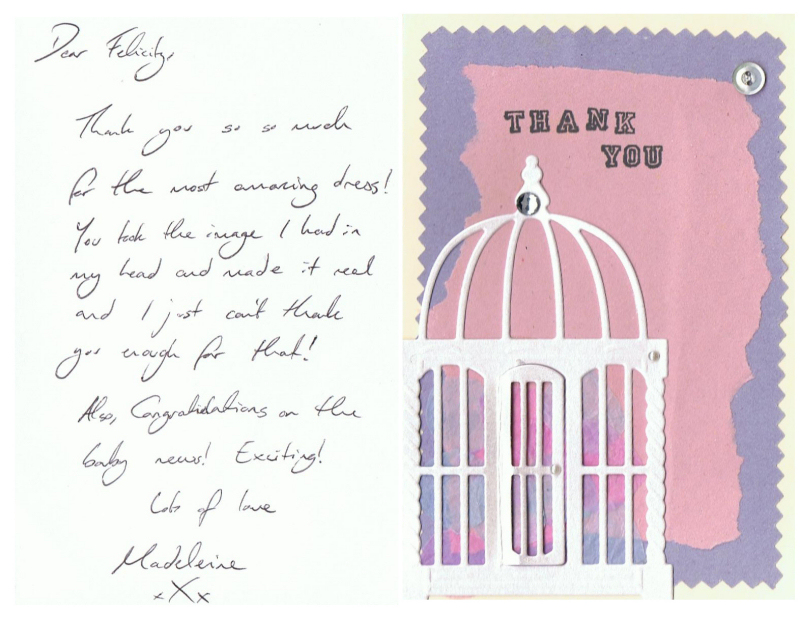 Dear Felicity,
Thank you so so much
for the most amazing dress!
You took the image I had in
my head and made it real
and I just can't thank
you enough for that!
Also, Congratulations on the
baby news! Exciting!
Lots of love
Madeleine
xXx
THANK
YOU